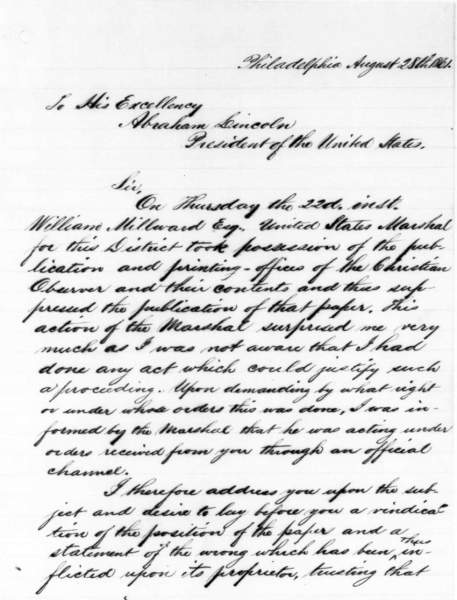 Philadelphia August 28th 1861.
To His Excellency
Abraham Lincoln
President of the United States.
Sir,
On Thursday the 22d. inst.
William Millward Esq. United States Marshal
for this District took possession of the pub-
lication and printing-offices of the Christian
Observer and their contents and thus sup
pressed the publication of that paper. This
action of the Marshal surprised me very
much as I was not aware that I had
done any act which could justify such
a proceeding. Upon demanding by what right
or under whose orders this was done, I was in-
formed by the Marshal that he was acting under
orders received from you through an official
channel.
I therefore address you upon the sub-
ject and desire to lay before you a vindica-
tion of the position of the paper and a
statement of the wrong which has been thus in-
flicted upon its proprietor, trusting that